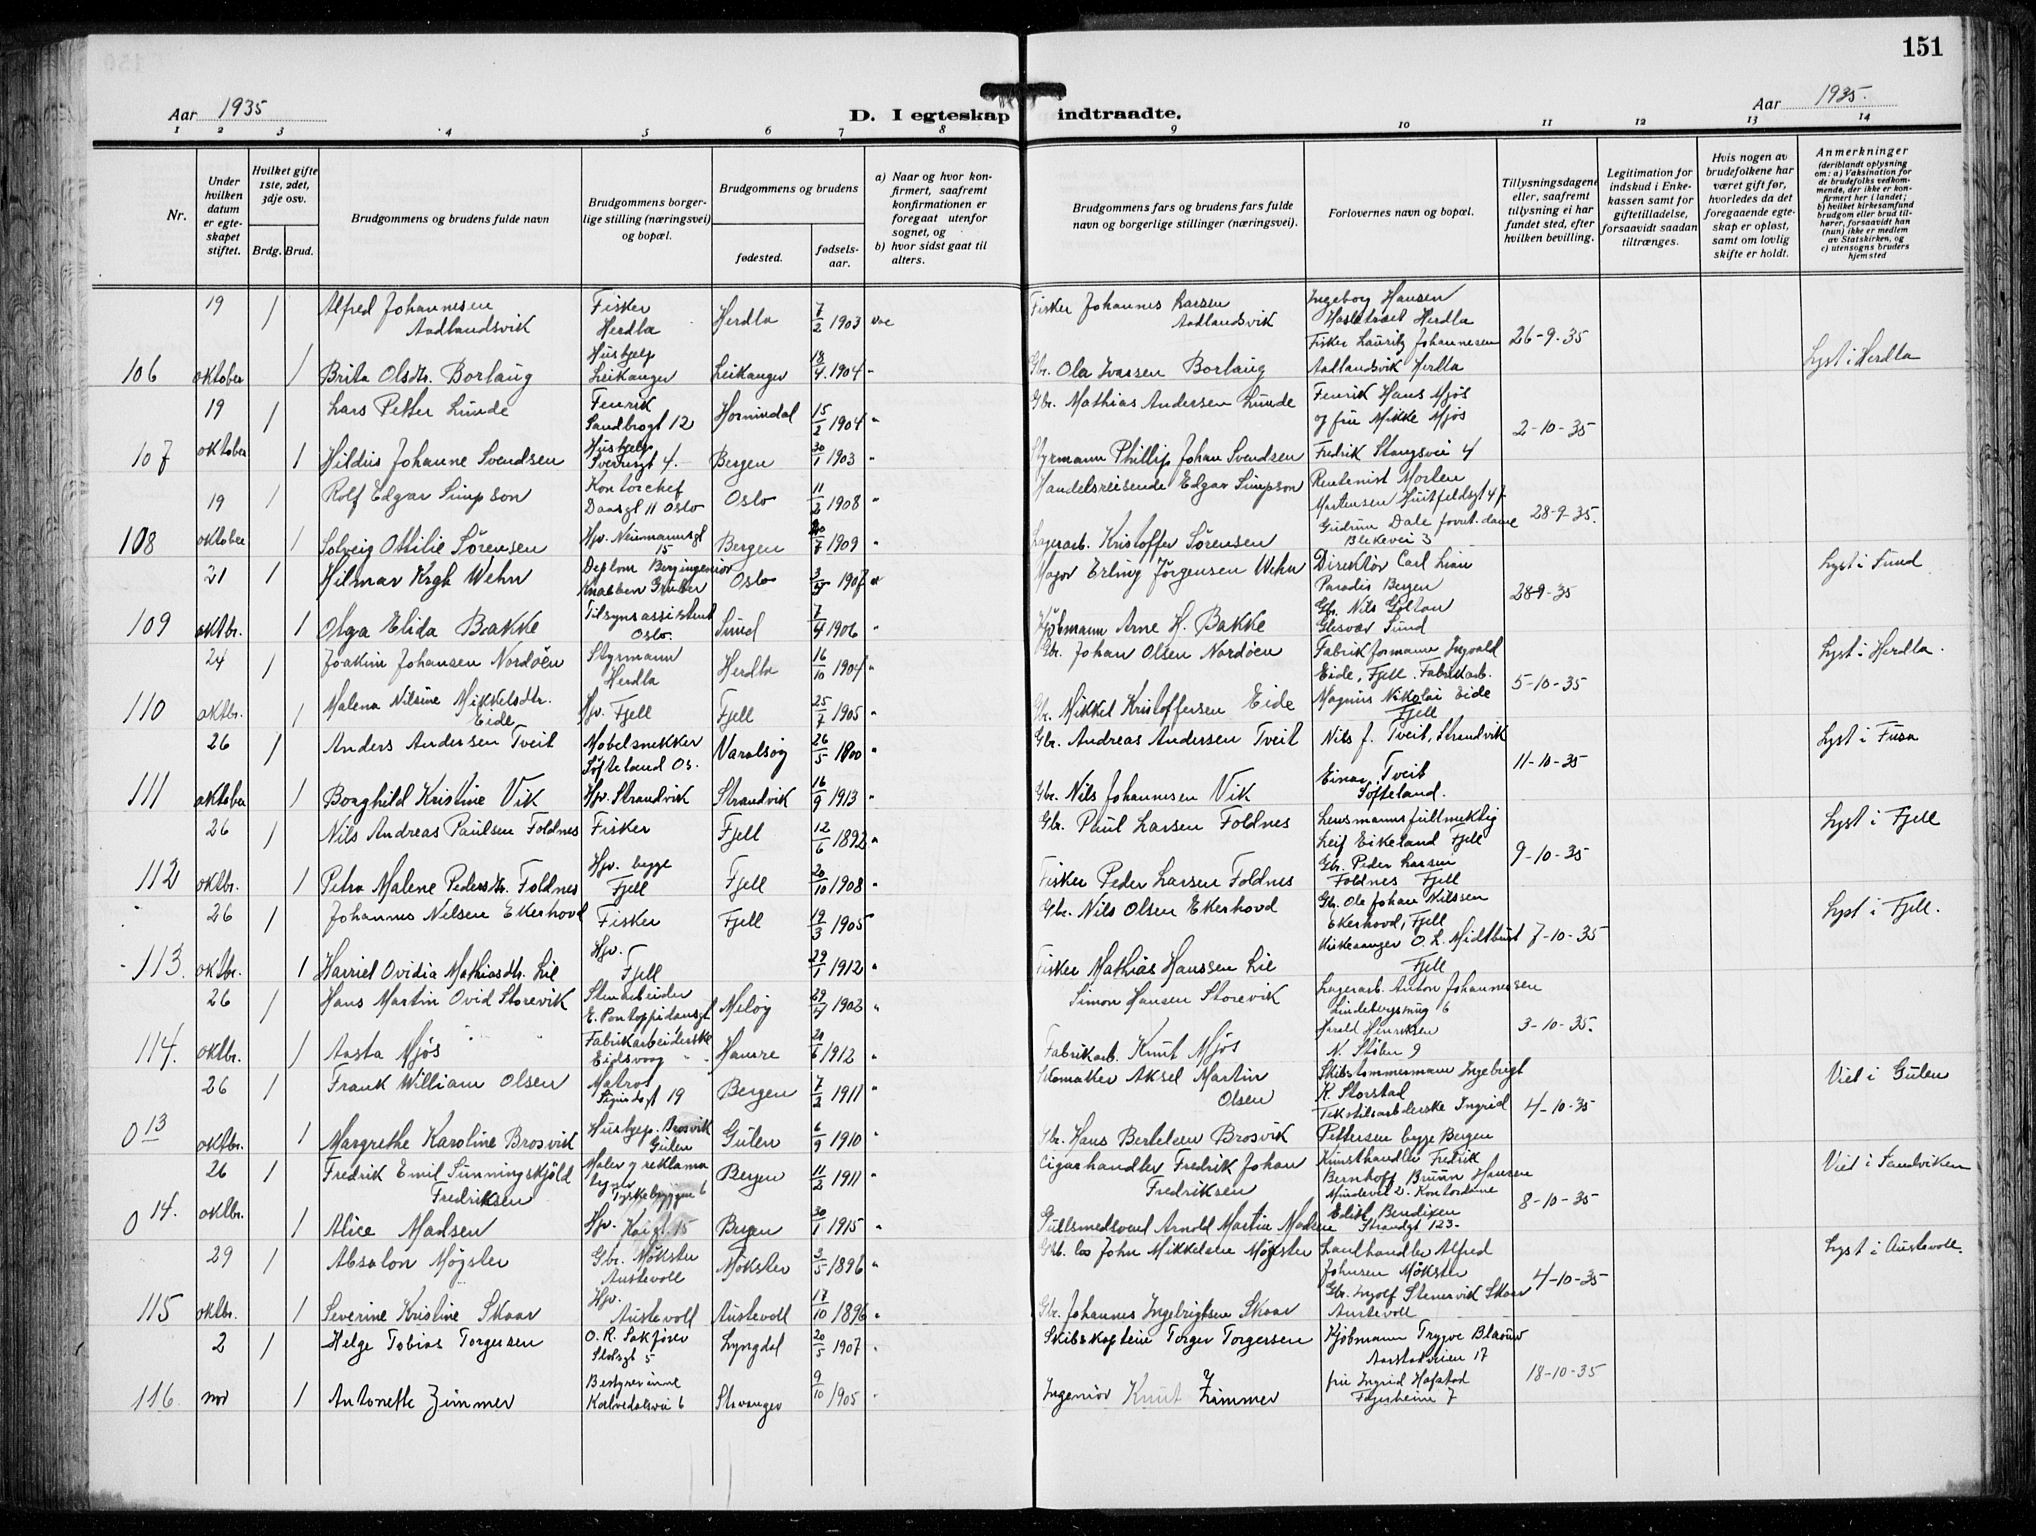 151
Aar 1935
D. I egteskap indtraadte.
Aar 1935.
1 2 3 4 5 6 7 8 9 10 11 12 13 14
Nr.
Under hvilken datum er egteskapet stiftet.
Hvilket gifte 1ste, 2det, 3dje osv.
Brdg. Brud.
Brudgommens og brudens fulde navn
Brudgommens borgerlige stilling (næringsvei) og bopæl.
Brudgommens og brudens
fødested.
fødselsaar.
a) Naar og hvor konfirmert, saafremt konfirmationen er foregaat utenfor sognet, og
b) hvor sidst gaat til alters.
Brudgommens fars og brudens fars fulde navn og borgerlige stillinger (næringsvei).
Forlovernes navn og bopæl.
Tillysningsdagene eller, saafremt tillysning ei har fundet sted, efter hvilken bevilling.
Legitimation for indskud i Enkekassen samt for giftetilladelse, forsaavidt saadan tiltrænges.
Hvis nogen av brudefolkene har været gift før, hvorledes da det foregaaende egteskap er opløst, samt om lovlig skifte er holdt.
Anmerkninger
(deriblandt oplysning om: a) Vaksination for de brudefolks vedkommende, der ikke er konfirmert her i landet; b) hvilket kirkesamfund brudgom eller brud tilhører, forsaavidt han (hun) ikke er medlem av Statskirken, og c) utensogns bruders hjemsted
19 1 Alfred Johannesen Aadlandsvik Fisker Herdla Herdla 7/2 1903 Fisker Johannes Larsen Aadlandsvik Ingeborg Hansen Herdla
Fisker Lauritz Johannesen Aadlandsvik Herdla 26-9-35
106 oktober 1 Brita Olsdtr. Borlaug Hushjelp Leikanger Leikanger 18/4 1904 " Gbr. Ola Ivarsen Borlaug Lyst i Herdla
19 1 Lars Petter Lunde Fenrik Sandbrogt 12 Hornindal 15/2 1904 " Gbr. Mathias Andersen Lunde Fenrik Hans Mjøs og fru Mikke Mjøs 2-10-35
107 oktober 1 Hildus Johanne Svendsen Hushjelp Sverresgt 4. Bergen 30/1 1903 " Styrmann Phillip Johan Svendsen Fredrik Stangsvei 4
19 1 Rolf Edgar Simpson Kontorchef Daasgt 11 Oslo Oslo 11/2 1908 " Handelsreisende Edgar Simpson Rentenist Morten Mortensen Huitfeldsgt 47 28-9-35.
108 oktober 1 Solveig Ottilie Sørensen Hjv. Neumannsgt 15 Bergen 20/7 1909 " Lagerarb. Kristoffer Sørensen Gudrun Dale forret. dame Blekevei 3
21 1 Hilmar Krgh Wehn Deplom Bergingeniør Knabben Gruber Oslo 1907 Major Erling Jørgensen Wehn Direktør Carl Lian Paradis Bergen 28-9-35 Lyst i Sund
109 oktbr. 1 Olga Elida Bakke Tilsynsassistent Oslo. Sund 7/4 1906 " Kjøbmann Arne H. Bakke Gbr. Nils Golten Glesvær Sund
24 1 Joakim Johansen Nordøen Styrmann Herdla Herdla 16/10 1904 " Gbr. Johan Olsen Nordøen Fabrikformann Ingvald Eide, Fjell. Fabrikarb. 5-10-35 Lyst i Herdla.
110 oktbr. 1 Malena Nilsine Mikkelsdtr. Eide Hjv. Fjell Fjell 25/7 1905 " Gbr. Mikkel Kristoffersen Eide Magnus Nikolai Eide Fjell
26 1 Anders Andersen Tveit Møbelsnekker Søfteland Os. Varalsøy 26/5 1900 " Gbr. Andreas Andersen Tveit Nils J. Tveit, Strandvik 11-10-35 Lyst i Fusa
111 oktober 1 Borghild Kristine Vik Hjv. Strandvik Strandvik 16/9 1913 " Gbr. Nils Johannesen Vik Einar Tveit Søfteland.
26 1 Nils Andreas Paulsen Foldnes Fisker Fjell 12/6 1892 " Gbr. Paul Larsen Foldnes Lensmannsfullmektig Leif Eikeland Fjell 9-10-35 Lyst i Fjell
112 oktbr. 1 Petra Malene Pedersdtr. Foldnes Hjv. begge Fjell Fjell 20/10 1908 " Fisker Peder Larsen Foldnes Gbr. Peder Larsen Foldnes Fjell
26 1 Johannes Nelsen Ekerhovd Fisker Fjell 19/3 1905 Gbr. Nils Olsen Ekerhovd Gbr. Ole Johan Nilssen Ekerhovd, Fjell 7-10-35 Lyst i Fjell.
113. oktbr. 1 Harriet Ovidia Mathiasdtr. Lie Hjv. Fjell 29/1 1912 " Fisker Mathias Hanssen Lie Kirkesanger O. L. Midttun Fjell
26 1 Hans Martin Ovid Storevik Stenarbeider E. Pontoppidansgt Meløy 1902 " Simon Hansen Storevik Lagerarb. Anton Johannessen 6 3-10-35.
114. oktbr. 1 Aasta Mjøs Fabrikarbeiderske Eidsvaag Hamre 1912 " Fabrikarb. Knut Mjøs Harald Henriksen N. Stølen 9
26 1 Frank William Olsen Matros Sigurdsgt 19 Bergen 7/2 1911 " Skomaker Aksel Martin Olsen Skibstømmermann Ingebrigt K. Storstad 4-10-35 Viet i Gulen
0 13 oktbr. 1 Margrethe Karoline Brosvik Hushjelp. Brosvik Gulen Gulen 6/9 1910 " Gbr. Hans Bertelsen Brosvik Tekstilarbderske Ingrid Pettersen begge Bergen
26 1 Fredrik Emil Sunningskjöld Fredriksen Maler og reklame Tyskebryggen 6 Bergen 11/2 1911 Cigarhandler Fredrik Johan Fredriksen Kunsthandler Fredrik Bernhoff Bruun Hansen Mindevei 2. Kontordame 8-10-35 Viet i Sandviken
0 14. oktbr. 1 Alice Madsen Hjv. Kaigt. 15 Bergen 30/1 1915 " Gullsmedsvend Arnold Martin Madsen Edith Bendixen Strandgt 123-
29 1 Absalon Møgster Gbr. Møkster Austevoll Møkster 3/5 1896 " Gbr. los John Mikkelsen Møgster Landhandler Alfred Johnsen Møkster 4-10-35 Lyst i Austevoll.
115 oktbr. 1 Severine Kristine Skaar Hjv. Austevoll Austevoll 17/10 1896 " Gbr. Johannes Ingebrigtsen Skaar Gbr. Ingolf Stenervik Skaar Austevoll
2 1 Helge Tobias Torgersen O. R. Sakfører Slotsgt 5 Lyngdal 20/5 1907 " Skibskaptein Torger Torgersen Kjöbmann Trygve Blaauw Aarstadveien 17 18-10-35
116 nov 1 Antonette Zimmer Bestyrerinne Kalvedalsvei 6 Stavanger 9/10 1905 " Ingeniør Knut Zimmer fru Ingrid Hofstad Fagerheim 7